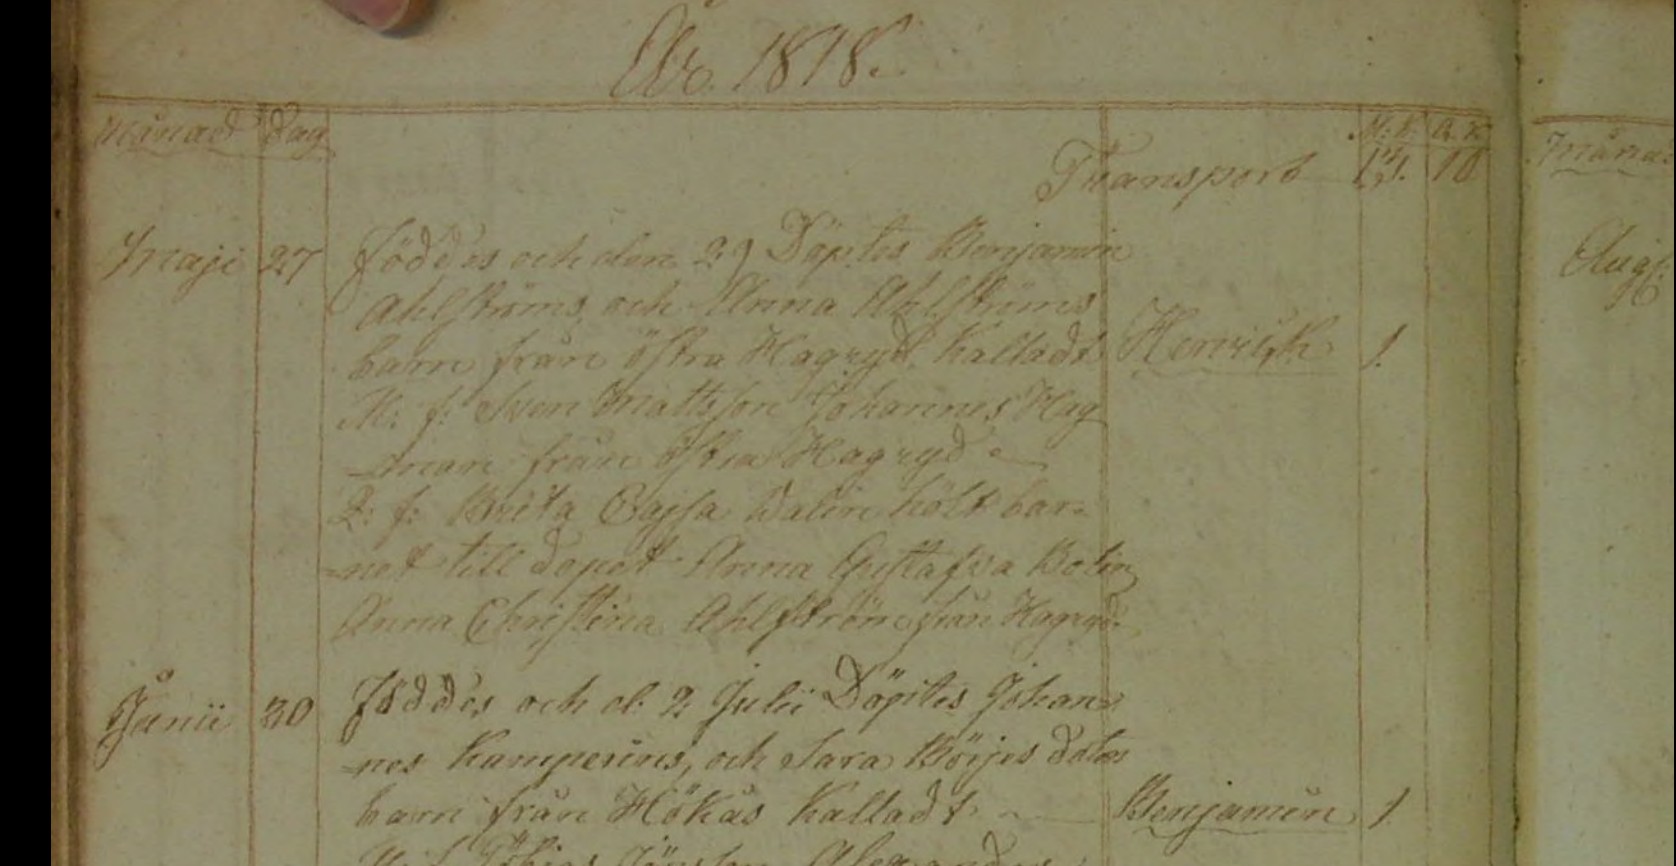 År. 1818.
Månad Dag M: K. Q. K
Transport 10
Maji 27 föddes och den 29 Döptes Benjamin
Ahlströms och Anna Ahlströms
barn från östra Hagryd. Kalladt Henrich 1
M: f: Sven Mattsson Johannes Hag
-man från östra Hagryd
Q: f: Brita Cajsa Walin höllt bar-
-net till dopet Anna Gustafva Bolin
Anna Christina Ahlström från Hagryd.
Junii 30 Föddes och d. 2 Julii Döptes Johan
-nes Kamperins, och Sara Börjes dotters
barn från Hökås Kalladt Benjamin 1
Måna
Aug